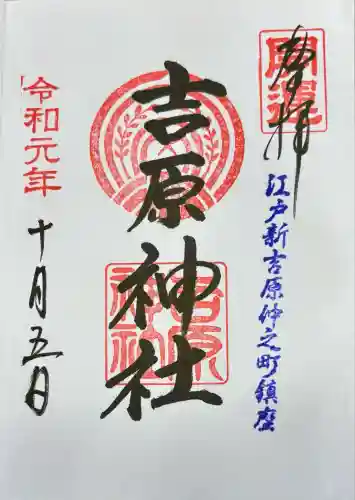 奉拝
開運
江戸新吉原仲之町鎮座
吉原神社
吉原神社
令和元年
十月五日